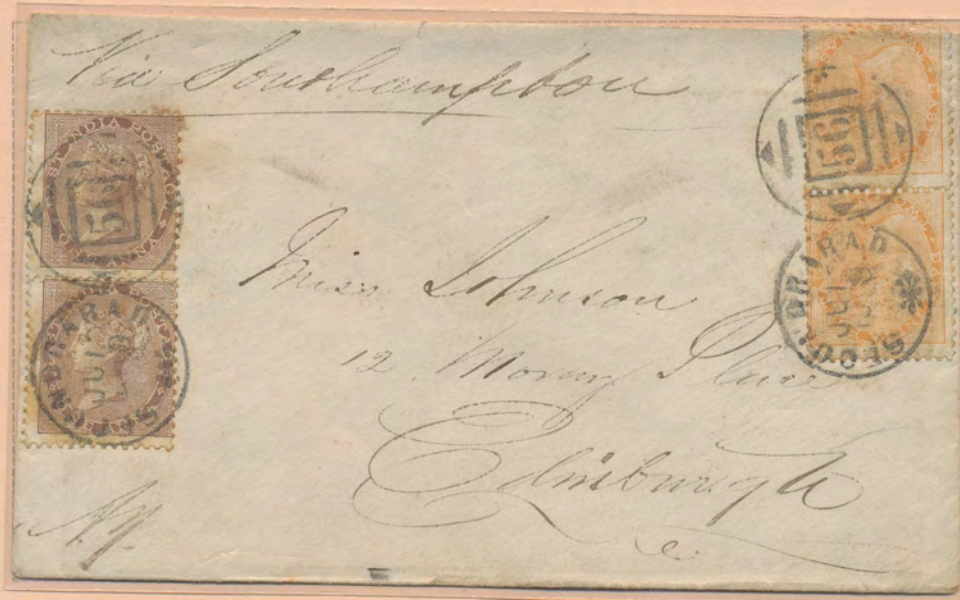 Via Southampton
EAST INDIA POSTAGE
56
56
SECUNDRABAD
JUL
SECUNDRABAD
JUL
Miss Johnson
12 Moray Place
Edinburgh